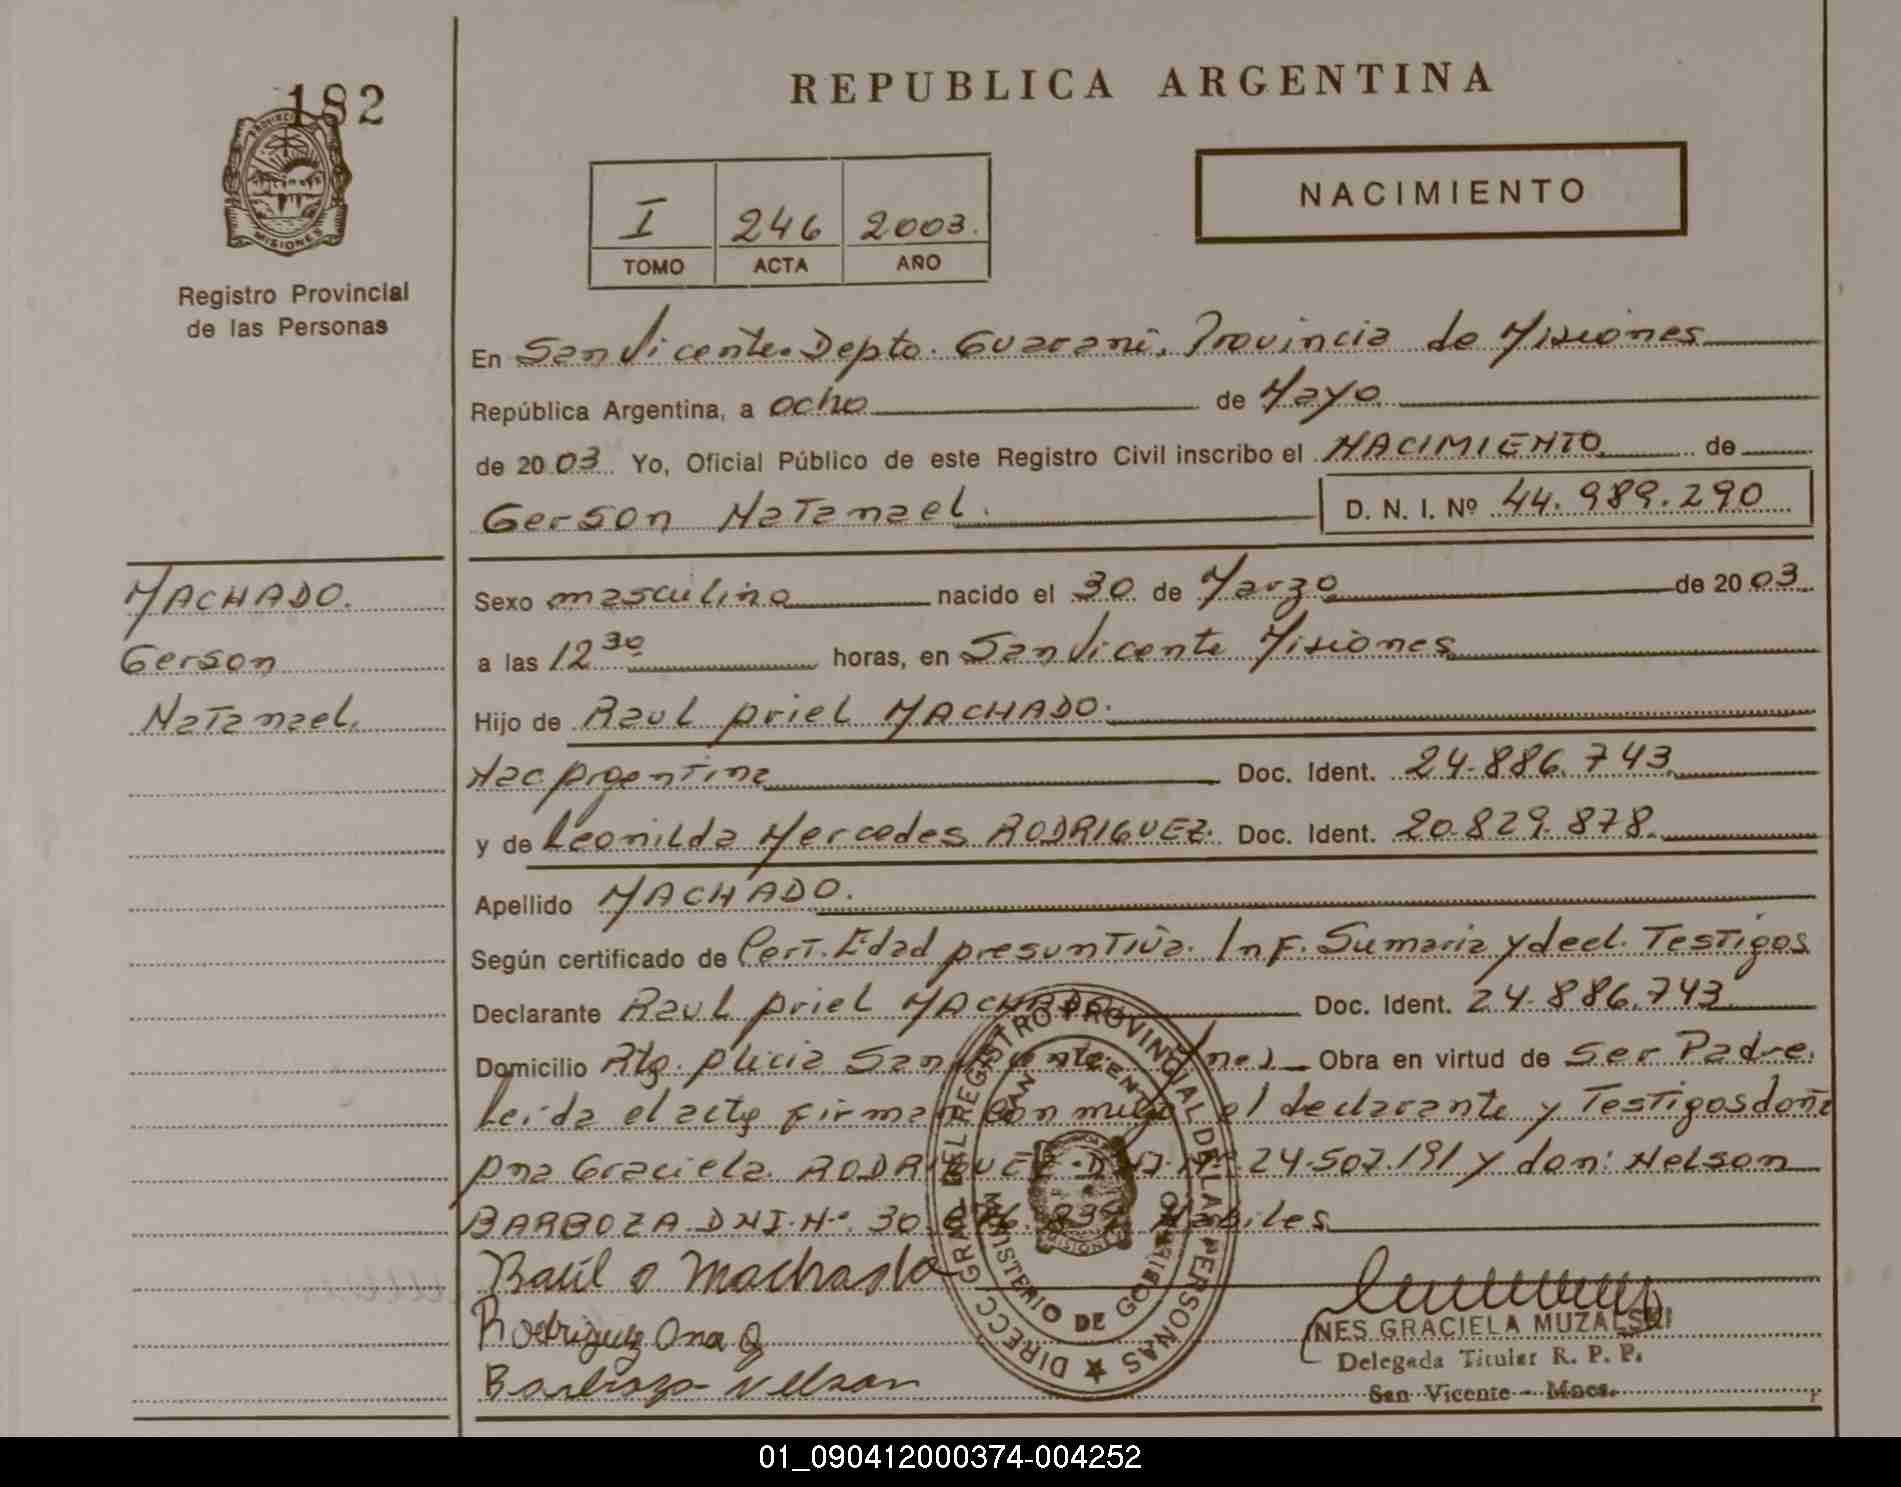 182
PROVINCIA
MISIONES
Registro Provincial
de las Personas
REPUBLICA ARGENTINA
NACIMIENTO
I 246 2003.
TOMO ACTA AÑO
En San Vicente. Depto. Guarani, Provincia de Misiones
República Argentina, a ocho de Mayo
de 2003 Yo, Oficial Público de este Registro Civil inscribo el NACIMIENTO de
Gerson Natanael. D. N. I. Nº 44.989.290
MACHADO.
Gerson
Natanael.
Sexo masculino nacido el 30 de Marzo de 2003
a las 12 30 horas, en San Vicente Misiones
Hijo de Raul Ariel MACHADO.
Nac Argentina Doc. Ident. 24.886.743
y de Leonilda Mercedes RODRIGUEZ. Doc. Ident. 20.829.878.
Apellido MACHADO.
Según certificado de Cert. Edad presuntiva. Inf. Sumaria y decl. Testigos
Declarante Raul Ariel MACHADO Doc. Ident. 24.886.743
Domicilio San Vicente Mnes Obra en virtud de Ser Padre.
Leida el acta firman con migo el declarante y Testigos doña
Ana Graciela RODRIGUEZ. DNI. Nº 24.507.191 y don: Nelson
BARBOZA. DNI. Nº. 30. Habiles
Raúl A Machado
Rodriguez Ana G
Barboza Nelson
DIRECC. GRAL. DEL REGISTRO PROVINCIAL DE LAS PERSONAS
SAN VICENTE
MISIONES
MINISTERIO DE GOBIERNO
INES GRACIELA MUZALSKI
Delegada Titular R. P. P.
San Vicente - Mnes.
01_090412000374-004252